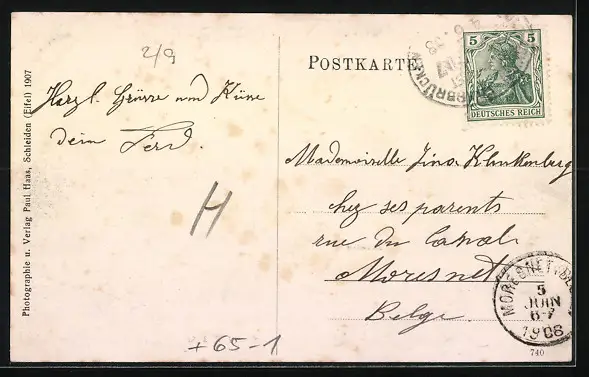 2/9
POSTKARTE
5 5
DEUTSCHES REICH
Herzl. Grüsse und Küsse
dein Ferd.
Mademoiselle Klinkenberg
chez ses parents
rue du Canal
Moresnet
Belge
H
+65-1
MORESNET
5
JUIN
6-7
1908
740
Photographie u. Verlag Paul Haas, Schleiden (Eifel) 1907